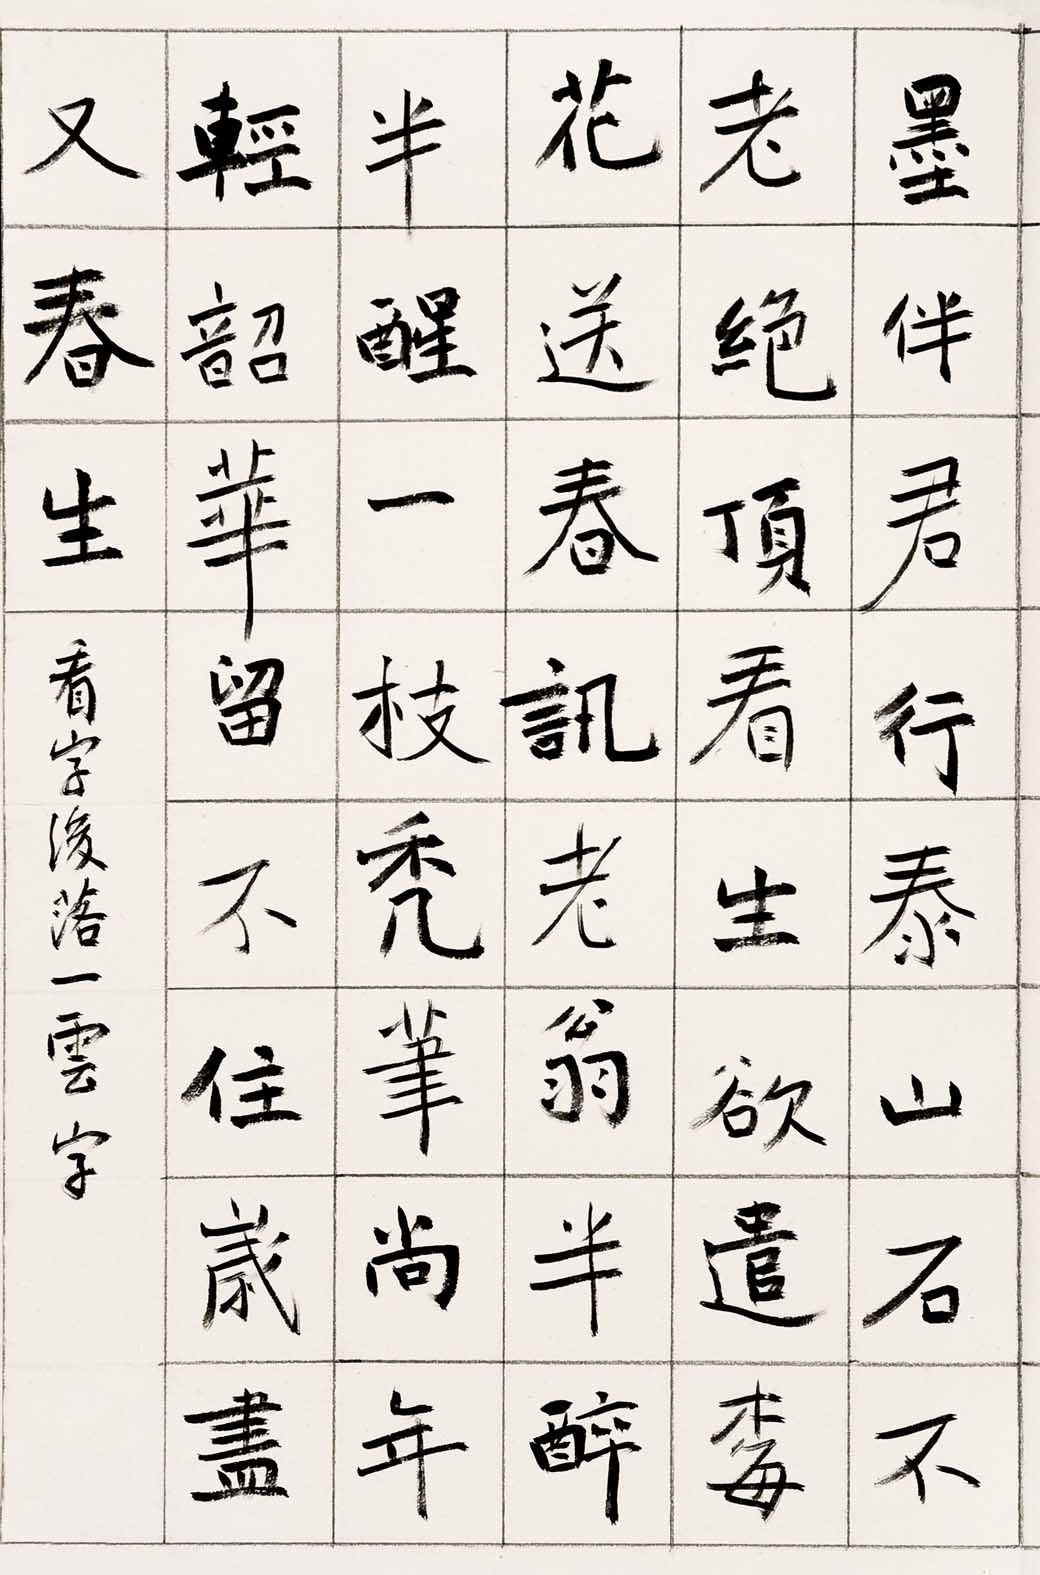 墨伴君行泰山石不
老絕頂看生欲遣楳
花送春訊老翁半醉
半醒一枝禿筆尚年
輕韶華留不住歲盡
又春生
看字後落一雲字